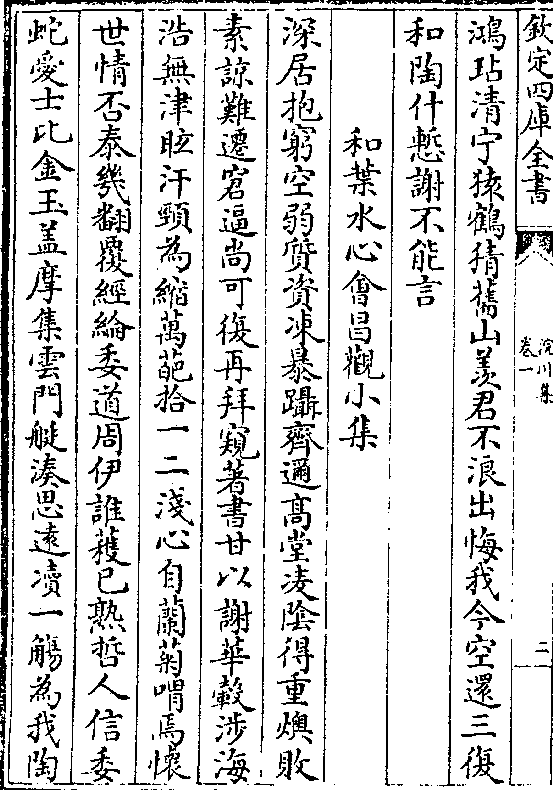 欽定四庫全書
浣川集
卷一
二
鴻玷清宁猿鶴猜舊山羡君不浪出悔我今空還三復
和陶什慙謝不能言
和葉水心會昌觀小集
深居抱窮空弱質資凍暴躡齊邇髙堂凌陰得重燠敗
素諒難遷窘逼尚可復再拜窺著書甘以謝華轂涉海
浩無津眩汗頸為縮萬葩拾一二淺心自蘭菊喟焉懷
世情否泰幾翻覆經綸委道周伊誰蓷已熟哲人信委
蛇愛士比金玉盖摩集雲門艇湊思遠凟一觴為我陶